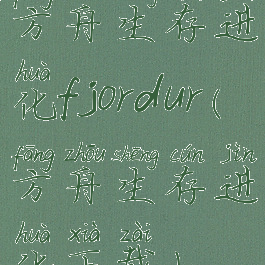 方舟生存进
huà
化fjordur(
fāng zhōu shēng cún jìn
方舟生存进
huà xià zài
化下载)